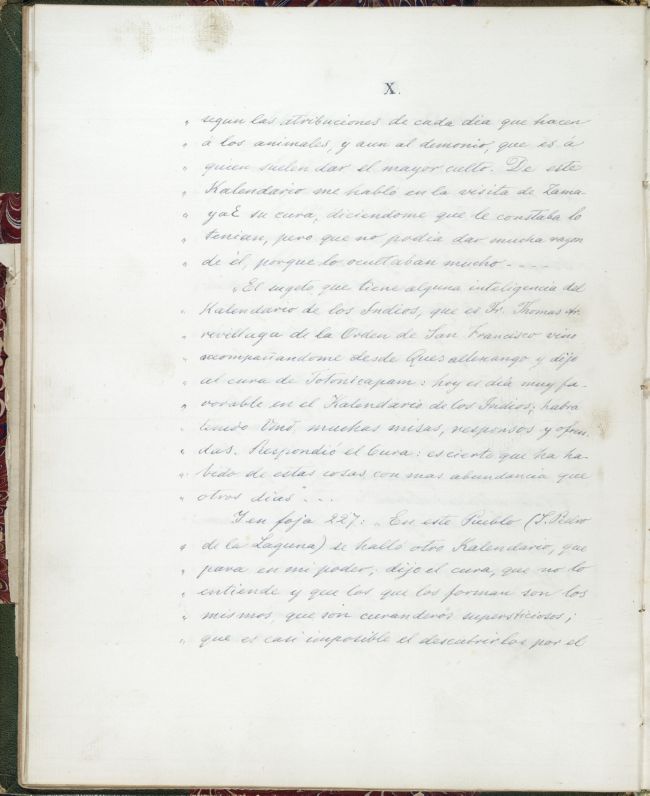 X.
„ segun las atribuciones de cada dia que hacen
„ á los animales, y aun al demonio, que es á
„ quien suelen dar el mayor culto. De este
„ Kalendario me habló en la visita de Zama-
„ yaE su cura, diciendome que le constaba lo
„ tenian, pero que no podia dar mucha razon
„ de él, porque lo ocultaban mucho - - - -
„ El sugeto que tiene alguna inteligencia del
„ Kalendario de los Indios, que es Fr. Thomas Ar-
„ revillaga de la Orden de San Francisco vino
„ acompañandome desde Quesaltenango y dijo
„ al cura de Totonicapam: hoy es dia muy fa-
„ vorable en el Kalendario de los Indios; habra
„ tenido muchas misas, responsos y ofren-
„ das. Respondió el Cura: es cierto que ha ha-
„ bido de estas cosas con mas abundancia que
„ otros dias" - - -
Y en foja 227: „ En este Pueblo (S. Pedro
„ de la Laguna) se halló otro Kalendario, que
„ para en mi poder; dijo el cura, que no lo
„ entiende y que los que los forman son los
„ mismos, que son curanderos supersticiosos;
„ que es casi imposible el descubrirlos por el